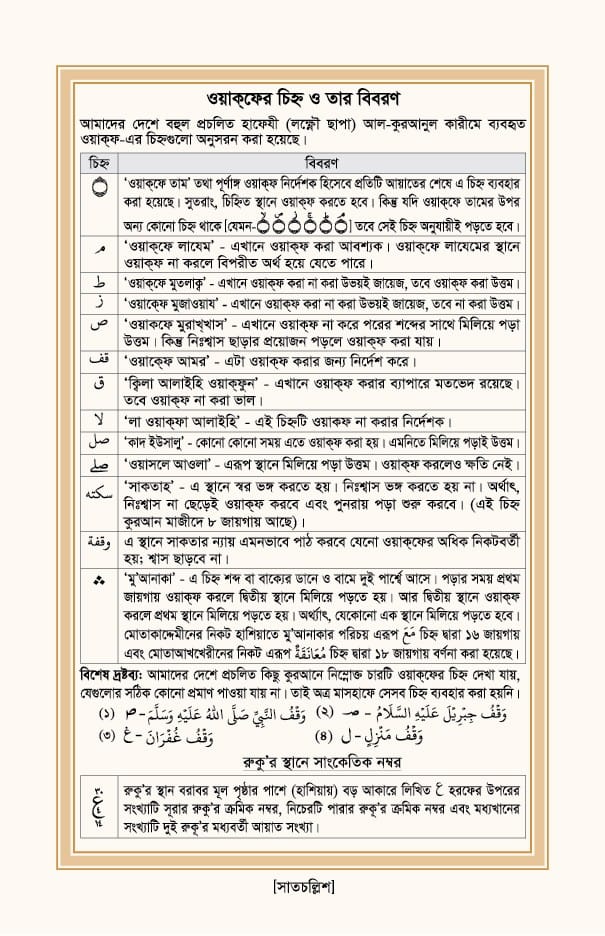 ওয়াক্‌ফের চিহ্ন ও তার বিবরণ
আমাদের দেশে বহুল প্রচলিত হাফেযী (লক্ষ্ণৌ ছাপা) আল-কুরআনুল কারীমে ব্যবহৃত
ওয়াক্‌ফ-এর চিহ্নগুলো অনুসরন করা হয়েছে।
চিহ্ন বিবরণ
‘ওয়াক্‌ফে তাম’ তথা পূর্ণাঙ্গ ওয়াক্‌ফ নির্দেশক হিসেবে প্রতিটি আয়াতের শেষে এ চিহ্ন ব্যবহার
করা হয়েছে। সুতরাং, চিহ্নিত স্থানে ওয়াক্‌ফ করতে হবে। কিন্তু যদি ওয়াক্‌ফে তামের উপর
অন্য কোনো চিহ্ন থাকে [যেমন-] তবে সেই চিহ্ন অনুযায়ীই পড়তে হবে।
م ‘ওয়াক্‌ফে লাযেম’ - এখানে ওয়াক্‌ফ করা আবশ্যক। ওয়াক্‌ফে লাযেমের স্থানে
ওয়াক্‌ফ না করলে বিপরীত অর্থ হয়ে যেতে পারে।
ط ‘ওয়াক্‌ফে মুতলাক্ব’ - এখানে ওয়াক্‌ফ করা না করা উভয়ই জায়েজ, তবে ওয়াক্‌ফ করা উত্তম।
ز ‘ওয়াক্‌ফে মুজাওয়ায’ - এখানে ওয়াক্‌ফ করা না করা উভয়ই জায়েজ, তবে না করা উত্তম।
ص ‘ওয়াকফে মুরাখ্‌খাস’ - এখানে ওয়াক্‌ফ না করে পরের শব্দের সাথে মিলিয়ে পড়া
উত্তম। কিন্তু নিঃশ্বাস ছাড়ার প্রয়োজন পড়লে ওয়াক্‌ফ করা যায়।
قف ‘ওয়াক্‌ফে আমর’ - এটা ওয়াক্‌ফ করার জন্য নির্দেশ করে।
ق ‘ক্বিলা আলাইহি ওয়াক্‌ফুন’ - এখানে ওয়াক্‌ফ করার ব্যাপারে মতভেদ রয়েছে।
তবে ওয়াক্‌ফ না করা ভাল।
لا ‘লা ওয়াক্‌ফা আলাইহি’ - এই চিহ্নটি ওয়াকফ না করার নির্দেশক।
صل ‘কাদ ইউসালু’ - কোনো কোনো সময় এতে ওয়াক্‌ফ করা হয়। এমনিতে মিলিয়ে পড়াই উত্তম।
صلے ‘ওয়াসলে আওলা’ - এরূপ স্থানে মিলিয়ে পড়া উত্তম। ওয়াক্‌ফ করলেও ক্ষতি নেই।
سكته ‘সাকতাহ’ - এ স্থানে স্বর ভঙ্গ করতে হয়। নিঃশ্বাস ভঙ্গ করতে হয় না। অর্থাৎ,
নিঃশ্বাস না ছেড়েই ওয়াক্‌ফ করবে এবং পুনরায় পড়া শুরু করবে। (এই চিহ্ন
কুরআন মাজীদে ৮ জায়গায় আছে)।
وقفة এ স্থানে সাকতার ন্যায় এমনভাবে পাঠ করবে যেনো ওয়াক্‌ফের অধিক নিকটবর্তী
হয়; শ্বাস ছাড়বে না।
∴ ‘মু‘আনাকা’ - এ চিহ্ন শব্দ বা বাক্যের ডানে ও বামে দুই পার্শ্বে আসে। পড়ার সময় প্রথম
জায়গায় ওয়াক্‌ফ করলে দ্বিতীয় স্থানে মিলিয়ে পড়তে হয়। আর দ্বিতীয় স্থানে ওয়াক্‌ফ
করলে প্রথম স্থানে মিলিয়ে পড়তে হয়। অর্থ্যাৎ, যেকোনো এক স্থানে মিলিয়ে পড়তে হবে।
মোতাকাদ্দেমীনের নিকট হাশিয়াতে মু‘আনাকার পরিচয় এরূপ مَعَ চিহ্ন দ্বারা ১৬ জায়গায়
এবং মোতাআখখেরীনের নিকট এরূপ مُعَانَقَةٌ চিহ্ন দ্বারা ১৮ জায়গায় বর্ণনা করা হয়েছে।
বিশেষ দ্রষ্টব্য: আমাদের দেশে প্রচলিত কিছু কুরআনে নিম্নোক্ত চারটি ওয়াক্‌ফের চিহ্ন দেখা যায়,
যেগুলোর সঠিক কোনো প্রমাণ পাওয়া যায় না। তাই অত্র মাসহাফে সেসব চিহ্ন ব্যবহার করা হয়নি।
(১) وَقْفُ النَّبِيِّ صَلَّى اللهُ عَلَيْهِ وَسَلَّمَ - (২) وَقْفُ جِبْرِيْلَ عَلَيْهِ السَّلَامُ -
(৩) وَقْفُ غُفْرَانَ - (৪) وَقْفُ مَنْزِلٍ - ل
রুকু'র স্থানে সাংকেতিক নম্বর
ع রুকু'র স্থান বরাবর মূল পৃষ্ঠার পাশে (হাশিয়ায়) বড় আকারে লিখিত ع হরফের উপরের
সংখ্যাটি সূরার রুকু'র ক্রমিক নম্বর, নিচেরটি পারার রুকু'র ক্রমিক নম্বর এবং মধ্যখানের
সংখ্যাটি দুই রুকু'র মধ্যবর্তী আয়াত সংখ্যা।
[সাতচল্লিশ]